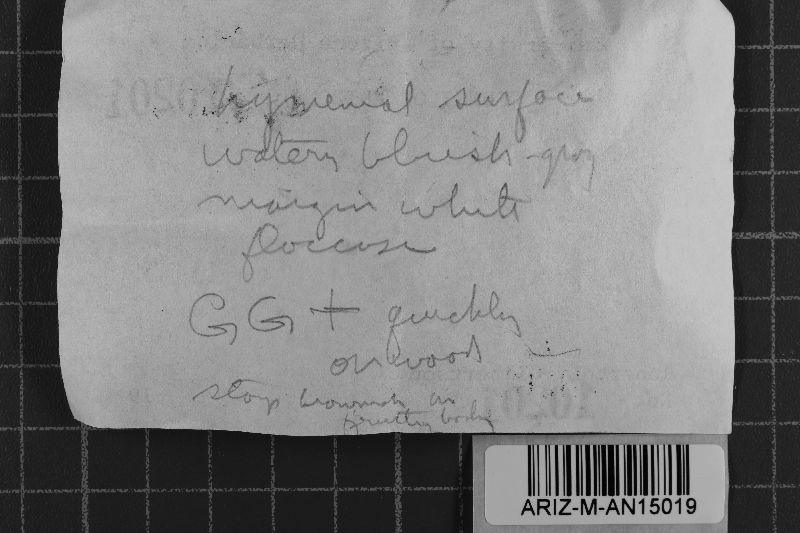 hymenial surface
watery bluish-gray
margin white
floccose
GG + quickly
on wood
stays brownish on
fruiting body
ARIZ-M-AN15019